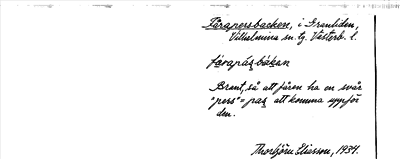 Fårapersbacken, i Granliden,
Vilhelmina sn. tg. Västerb. l.
fårapásbákan
Brant, så att fåren ha en svår
"pers" = pas att komma uppför
den.
Thorbjörn Eliasson, 1934.